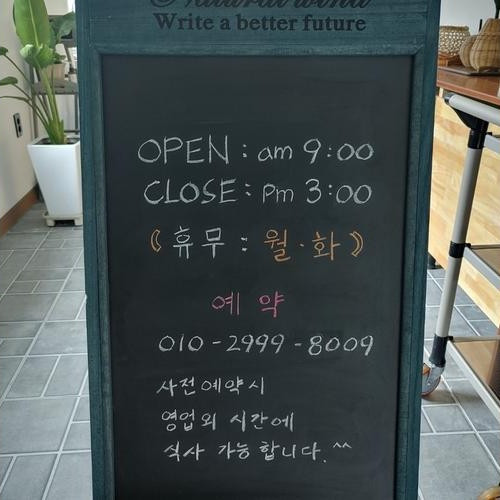 Natural wind
Write a better future
OPEN : am 9:00
CLOSE : Pm 3:00
(휴무 : 월·화)
예약
010-2999-8009
사전예약시
영업외 시간에
식사 가능합니다.^^